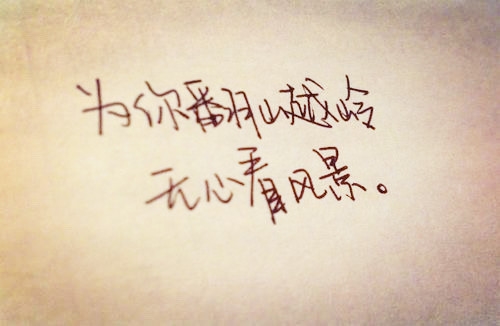 为你翻山越岭
无心看风景。